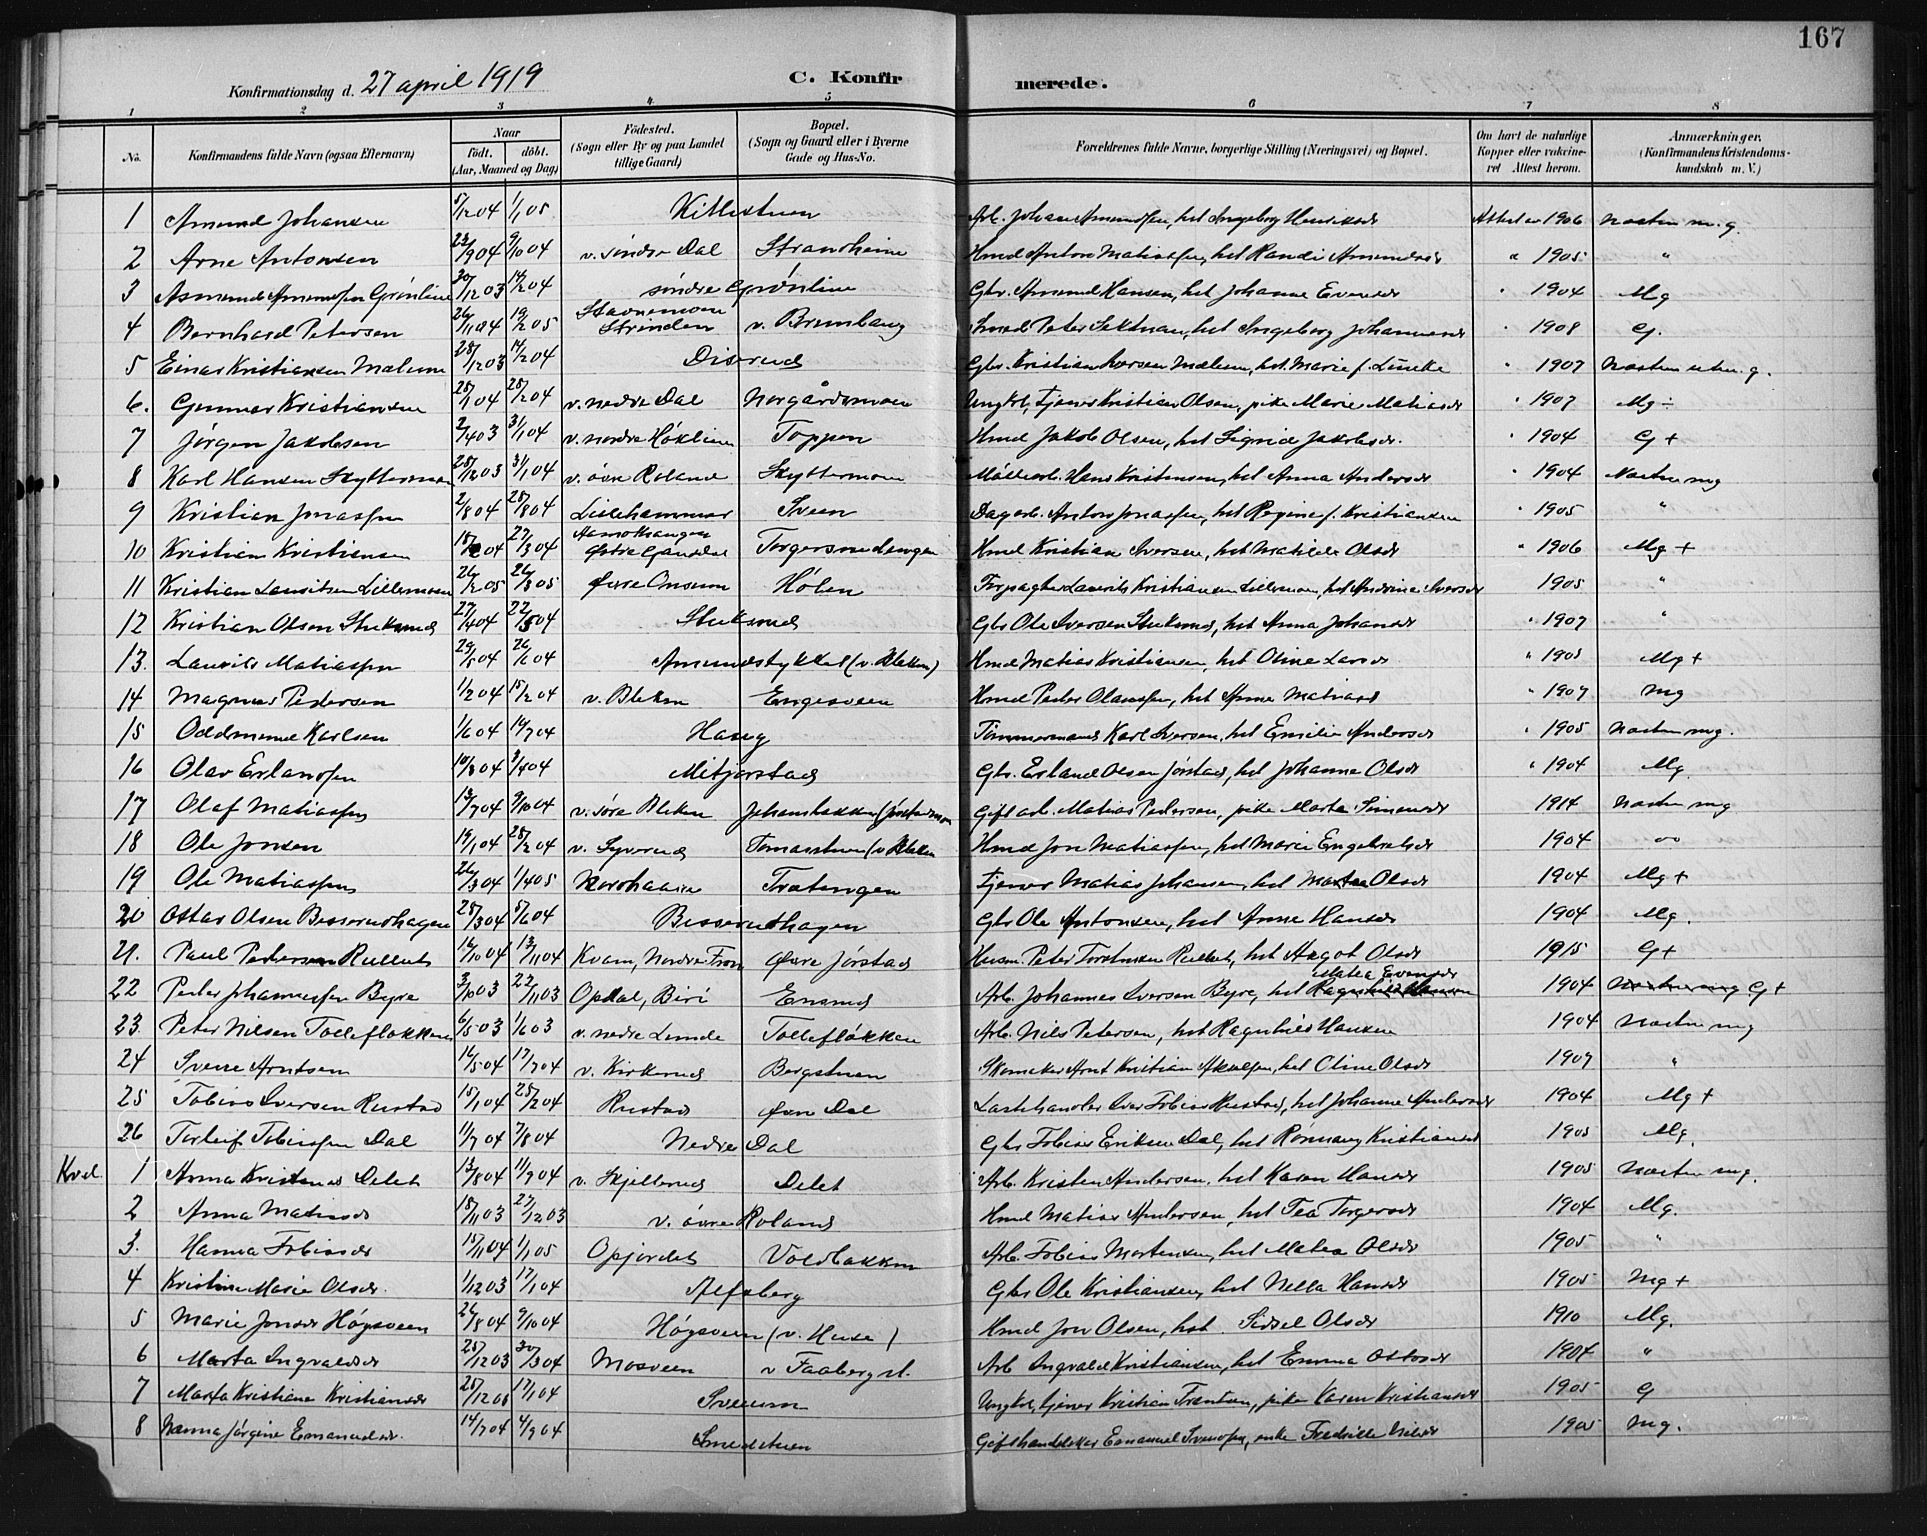 167
Konfirmationsdag d. 27 april 1919 C. Konfirmerede.
1 2 3 4 5 6 7 8
No. Konfirmandens fulde Navn (ogsaa Efternavn) Naar født. døbt. (Aar, Maaned og Dag) Fødested. (Sogn eller By og paa Landet tillige Gaard) Bopæl. (Sogn og Gaard eller i Byerne Gade og Hus-No. Forældrenes fulde Navne, borgerlige Stilling (Næringsvei) og Bopæl. Om havt de naturlige Kopper eller vakcineret Attest herom. Anmærkninger. (Konfirmandens Kristendomskundskab m. V.)
1 Amund Johansen 5/12 04 1/1 05 Kittilstuen Arb. Johan Amundsen, hst Ingeborg Henriksdr Attest av 1906 Næsten m.g.
2 Arne Antonsen 23/9 04 9/10 04 v. søndre Dal Strandheim Hmd Anton Matiassen, hst Randi Amundsdr " 1905 "
3 Asmund Amundsen Grønlien 30/12 03 14/2 04 søndre Grønlien Gbr. Amund Hansen, hst Johanne Evensdr " 1904 Mg
4 Bernhard Petersen 26/11 04 19/2 05 Stavnemoen Strinden v. Brunlaug Smed Peter Sektnan, hst Ingeborg Johannesdr " 1908 G.
5 Einar Kristiansen Mælum 28/12 03 14/2 04 Diserud Gbr. Kristian Iversen Mælum, hst. Marie f. Lunke " 1907 Næsten m.g.
6. Gunnar Kristiansen 25/1 04 28/2 04 v. nedre Dal Norgårdsmoen Ungkl, tjener Kristian Olsen, pike Marie Matiasdr " 1907 Mg ÷
7 Jørgen Jakobsen 2/4 03 31/1 04 v. nordre Høklien Toppen Hmd Jakob Olsen, hst Sigrid Jakobsdr. " 1904 G +
8 Karl Hansen Skyttermoen 25/12 03 31/1 04 v. øvre Roland Skyttermoen Møllearb. Hans Kristensen, hst Anna Andersdr " 1904 Næsten mg
9 Kristian Jonassen 2/8 04 28/8 04 Lillehammer Sveen Dagarb. Anton Jonassen, hst Regine f. Kristiansen " 1905 "
10 Kristian Kristiansen 04 27/3 04 Østre Gausdal Torgersmedengen Hmd Kristian Iversen, hst Matilde Olsdr " 1906 Mg +
11 Kristian Lauritsen Lillemoen 26/2 05 26/3 05 Øvre Onsum Holen Forpagter Laurits Kristiansen Lillemoen, hst Andrine Iversdr 1905 "
12 Kristian Olsen Stuksrud 27/4 04 22/5 04 Stuksrud Gbr Ole Iversen Stuksrud, hst Anna Johansdr " 1907 "
13. Laurits Matiassen 29/5 04 26/6 04 Amundstykket (v. Bleken) Hmd Matias Kristiansen, hst Oline Larsdr " 1905 Mg +
14 Magnus Pedersen 1/2 04 15/2 04 v. Bleken Engesveen Hmd Peder Olaussen, hst Anne Matiasdr " 1907 Mg
15 Oddmund Karlsen 1/6 04 14/7 04 Haug Tømmermand Karl Iversen, hst Emilie Andersdr " 1905 Næsten mg.
16 Olav Erlandsen 10/3 04 3/4 04 Mitjørstad Gbr. Erland Olsen Jørstad, hst Johanne Olsdr " 1904 Mg.
17 Olaf Matiassen 13/7 04 9/10 04 v. søre Bleken Johansbakken (Jørstadmoen Gift arb. Matias Pedersen, pike Marta Simensdr 1914 Næsten mg
18 Ole Jonsen 19/1 04 28/2 04 v. Syverud Tomasstuen (v. Bleken Hmd Jon Matiassen, hst Marie Engebretsdr 1904 "
19 Ole Matiassen 26/3 04 1/4 05 Nordhaave Tratengen Tjener Matias Johansen, hst Martea Olsdr 1904 Mg +
20 Ottar Olsen Besserudhagen 25/3 04 5/6 04 Besserudhagen Gbr Ole Antonsen, hst Anne Hansdr 1904 Mg.
21. Paul Pedersen Rullut 16/10 04 13/11 04 Kvam, Nordre Fron Øvre Jørstad Husm. Peter Torstensen Rullut, hst Aagot Olsdr 1915 G+
22 Peder Johannessen Byre 3/10 03 22/11 03 Opdal, Biri Ensrud Arb. Johannes Iversen Byre, hst Matea Evensdr 1904 G +
23. Peter Nilsen Tolleføkken 6/5 03 1/6 03 v. nedre Lunde Tollefløkken Arb. Nils Petersen, hst Ragnhild Hansen 1904 Næsten mg
24 Sverre Arntsen 16/5 04 17/7 04 v. Kirkerud Bergstuen Skomaker Arnt Kristian Akselsen, hst Oline Olsdr 1907 "
25 Tobias Iversen Rustad 15/1 04 28/2 04 Rustad øvre Dal Lasthandler Iver Tobias Rustad, hst Johanne Andersdr 1904 Mg +
26 Torleif Tobiassen Dal 11/7 04 7/8 04 Nedre Dal Gbr Tobias Eriksen Dal, hst Rønnaug Kristiansdr 1905 Mg.
Kvd. 1 Anna Kristensdr Delet 13/8 04 11/9 04 v. Skjellerud Delet Arb. Kristen Andersen, hst Karen Hansdr 1905 Næsten mg.
2 Anna Matiasdr 18/11 03 27/12 03 v. øvre Roland Hmd Matias Andersen, hst Tea Torgersdr 1904 Mg.
3. Hanna Tobiasdr 15/11 04 1/1 05 Opjordet Voldbakken Arb. Tobias Mortensen, hst Matea Olsdr 1905 "
4 Kristine Marie Olsdr. 1/12 03 17/1 04 Alfsberg Gbr Ole Kristiansen, hst Nella Hansdr 1905 Mg +
5 Marie Jonsdr Høgsveen 26/8 04 9/10 04 Høgsveen (v. Huse) Hmd Jon Olsen, hst Sidsel Olsdr 1910 Mg.
6 Marta Ingvaldsdr 25/12 03 30/3 04 Mosveen v Faaberg st. Arb Ingvald Kristiansen, hst Emma Ottosdr 1904 "
7 Marta Kristiane Kristiansdr 17/1 04 Sveum Ungkl, tjener Kristian Frantsen, pike Karen Kristiansdr 1905 G
8 Nanna Jørgine Emanuelsdr. 14/7 04 4/9 04 Smedstuen Gift handelskar Emanuel Svendsen, enke Fredrikke Nilsdr 1905 Mg.